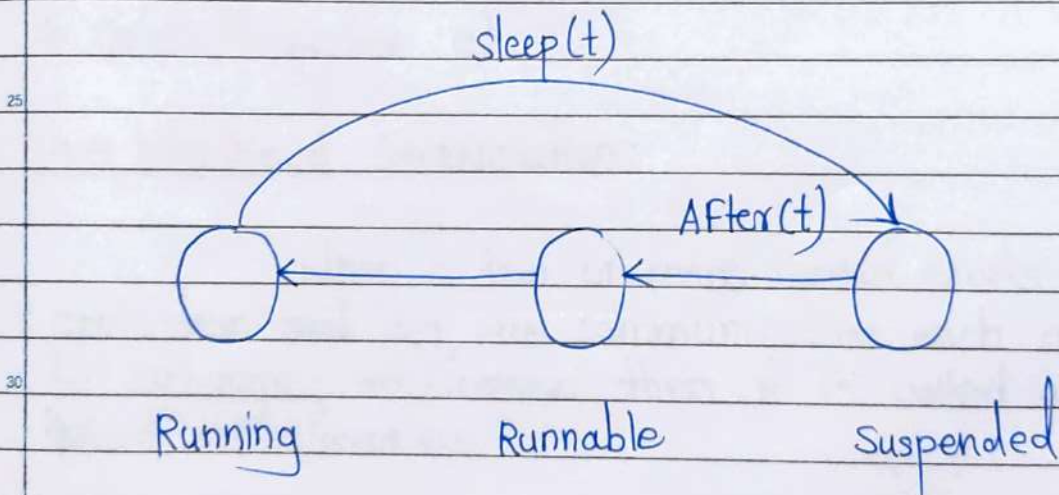 sleep(t)
25
AFter(t)
30
Running Runnable Suspended